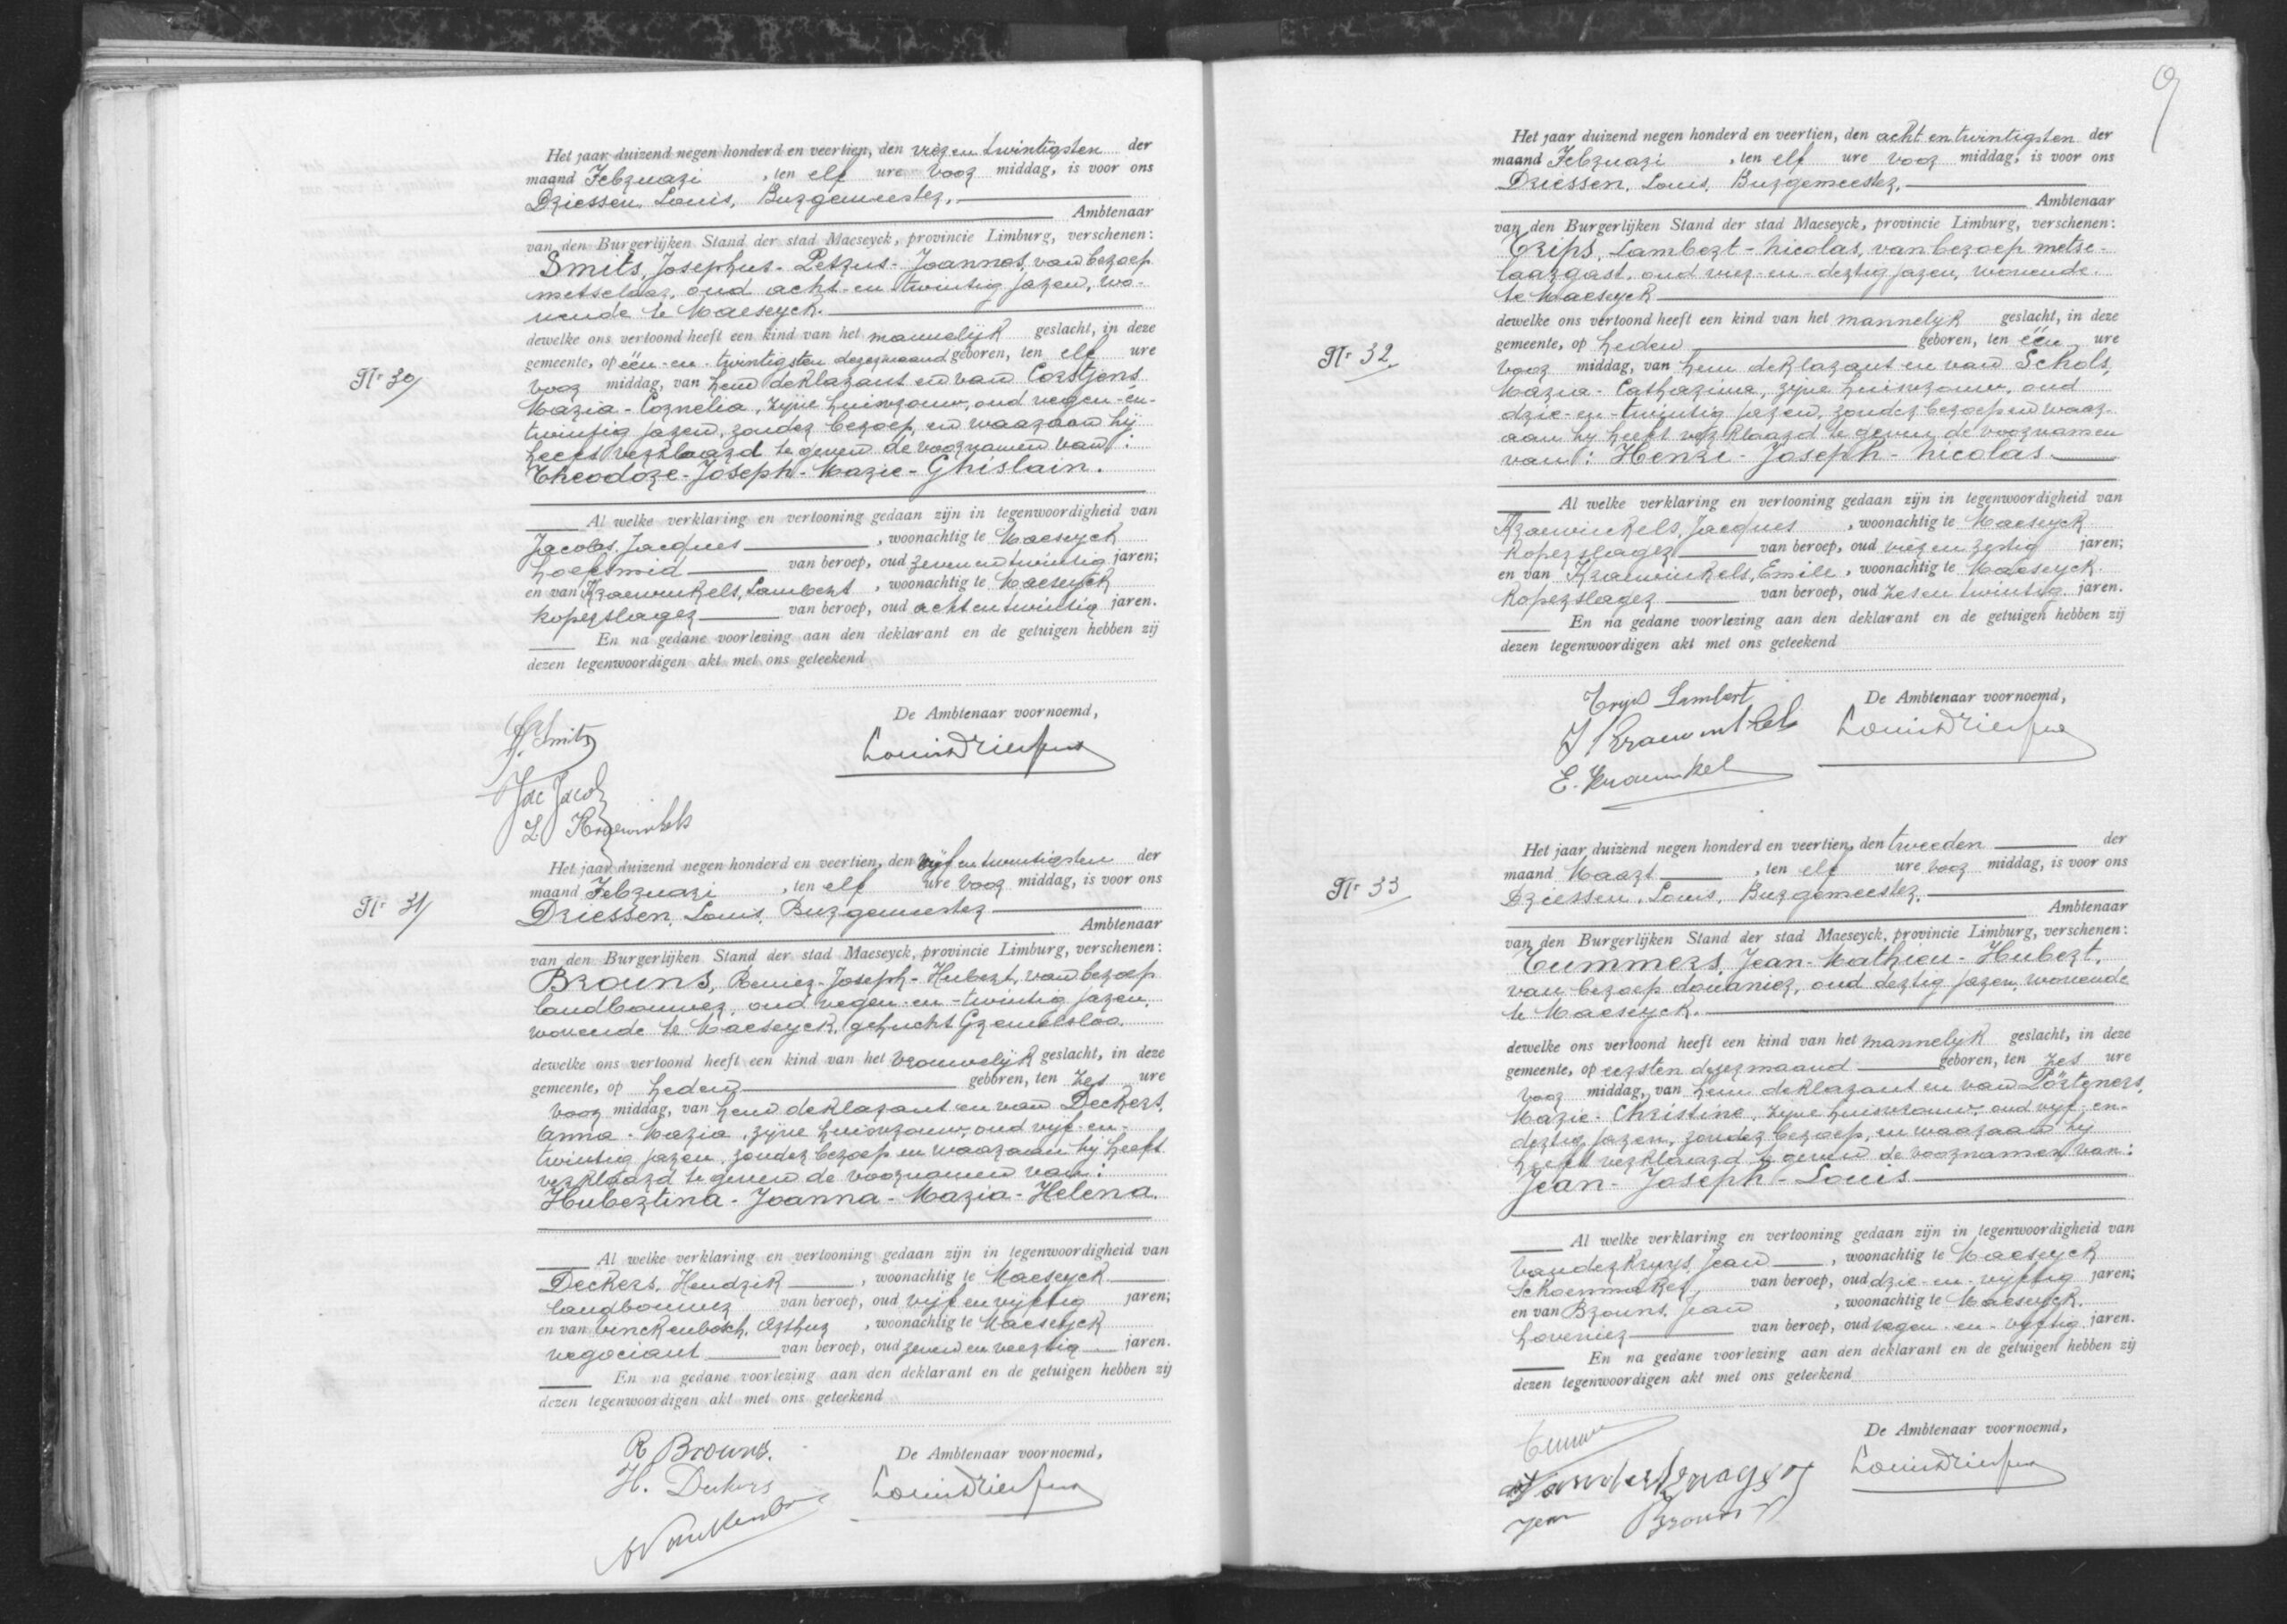 Het jaar duizend negen honderd en veertien, den vier en twintigsten der
maand Februari , ten elf ure voor middag, is voor ons
Driessen, Louis, Burgemeester,
Ambtenaar
van den Burgerlijken Stand der stad Maeseyck, provincie Limburg, verschenen:
Smits, Josephus - Petrus - Joannes, van beroep
metselaar, oud acht-en twintig jaren, wo-
nende te Maeseyck.
dewelke ons vertoond heeft een kind van het mannelijk geslacht, in deze
gemeente, op één-en-twintigsten dezer maand geboren, ten elf ure
Nr 30
voor middag, van hem deklarant en van Corstjens
Maria - Cornelia, zijne huisvrouw, oud negen-en-
twintig jaren, zonder beroep, en waaraan hij
heeft verklaard te geven de voornamen van:
Theodore - Joseph - Marie - Ghislain.
Al welke verklaring en vertooning gedaan zijn in tegenwoordigheid van
Jacobs, Jacques , woonachtig te Maeseyck
hoefsmid van beroep, oud zeven en twintig jaren;
en van Kraewinkels, Lambert , woonachtig te Maeseyck
koperslager van beroep, oud acht en twintig jaren.
En na gedane voorlezing aan den deklarant en de getuigen hebben zij
dezen tegenwoordigen akt met ons geteekend
De Ambtenaar voornoemd,
Smits
Louis Driessen
Jac Jacobs
L. Kraewinkels
Het jaar duizend negen honderd en veertien, den vijf en twintigsten der
maand Februari , ten elf ure voor middag, is voor ons
Nr 31
Driessen, Louis, Burgemeester
Ambtenaar
van den Burgerlijken Stand der stad Maeseyck, provincie Limburg, verschenen:
Brouns, Renier - Joseph - Hubert, van beroep
landbouwer, oud negen-en-twintig jaren,
wonende te Maeseyck, gehucht Gremelsloo.
dewelke ons vertoond heeft een kind van het vrouwelijk geslacht, in deze
gemeente, op heden geboren, ten zes ure
voor middag, van hem deklarant en van Deckers,
Anna - Maria, zijne huisvrouw, oud vijf-en-
twintig jaren, zonder beroep en waaraan hij heeft
verklaard te geven de voornamen van:
Hubertina - Joanna - Maria - Helena.
Al welke verklaring en vertooning gedaan zijn in tegenwoordigheid van
Deckers, Hendrik , woonachtig te Maeseyck
landbouwer van beroep, oud vijf en vijftig jaren;
en van Vinckenbosch, Arthur , woonachtig te Maeseyck
negociant van beroep, oud zeven en veertig jaren.
En na gedane voorlezing aan den deklarant en de getuigen hebben zij
dezen tegenwoordigen akt met ons geteekend
R Brouns.
De Ambtenaar voornoemd,
H. Deckers
Louis Driessen
9
Het jaar duizend negen honderd en veertien, den acht en twintigsten der
maand Februari , ten elf ure voor middag, is voor ons
Driessen, Louis, Burgemeester,
Ambtenaar
van den Burgerlijken Stand der stad Maeseyck, provincie Limburg, verschenen:
Trips, Lambert - Nicolas, van beroep metse-
laargast, oud vier-en-dertig jaren, wonende
te Maeseyck
dewelke ons vertoond heeft een kind van het mannelijk geslacht, in deze
Nr 32
gemeente, op heden geboren, ten één ure
voor middag, van hem deklarant en van Schols,
Maria - Catharina, zijne huisvrouw, oud
drie-en-twintig jaren, zonder beroep en waar-
aan hij heeft verklaard te geven de voornamen
van: Henri - Joseph - Nicolas
Al welke verklaring en vertooning gedaan zijn in tegenwoordigheid van
Kraewinkels, Jacques , woonachtig te Maeseyck
koperslager van beroep, oud vier en zestig jaren;
en van Kraewinkels, Emile , woonachtig te Maeseyck.
koperslager van beroep, oud zes en twintig jaren.
En na gedane voorlezing aan den deklarant en de getuigen hebben zij
dezen tegenwoordigen akt met ons geteekend
Tryps Lambert
De Ambtenaar voornoemd,
Louis Driessen
Het jaar duizend negen honderd en veertien, den tweeden der
maand Maart , ten elf ure voor middag, is voor ons
Nr 33
Driessen, Louis, Burgemeester.
Ambtenaar
van den Burgerlijken Stand der stad Maeseyck, provincie Limburg, verschenen:
Tummers, Jean - Mathieu - Hubert,
van beroep douanier, oud dertig jaren, wonende
te Maeseyck.
dewelke ons vertoond heeft een kind van het mannelijk geslacht, in deze
gemeente, op eersten dezer maand geboren, ten zes ure
voor middag, van hem deklarant en van Pörteners,
Marie - Christine, zijne huisvrouw, oud vijf-en-
dertig jaren, zonder beroep, en waaraan hij
heeft verklaard te geven de voornamen van:
Jean - Joseph - Louis
Al welke verklaring en vertooning gedaan zijn in tegenwoordigheid van
Vanderkruys, Jean , woonachtig te Maeseyck
Schoenmaker, van beroep, oud drie-en-vijftig jaren;
en van Brouns, Jean , woonachtig te Maeseyck.
hovenier van beroep, oud negen-en-vijftig jaren.
En na gedane voorlezing aan den deklarant en de getuigen hebben zij
dezen tegenwoordigen akt met ons geteekend
De Ambtenaar voornoemd,
Louis Driessen
Jean Brouns